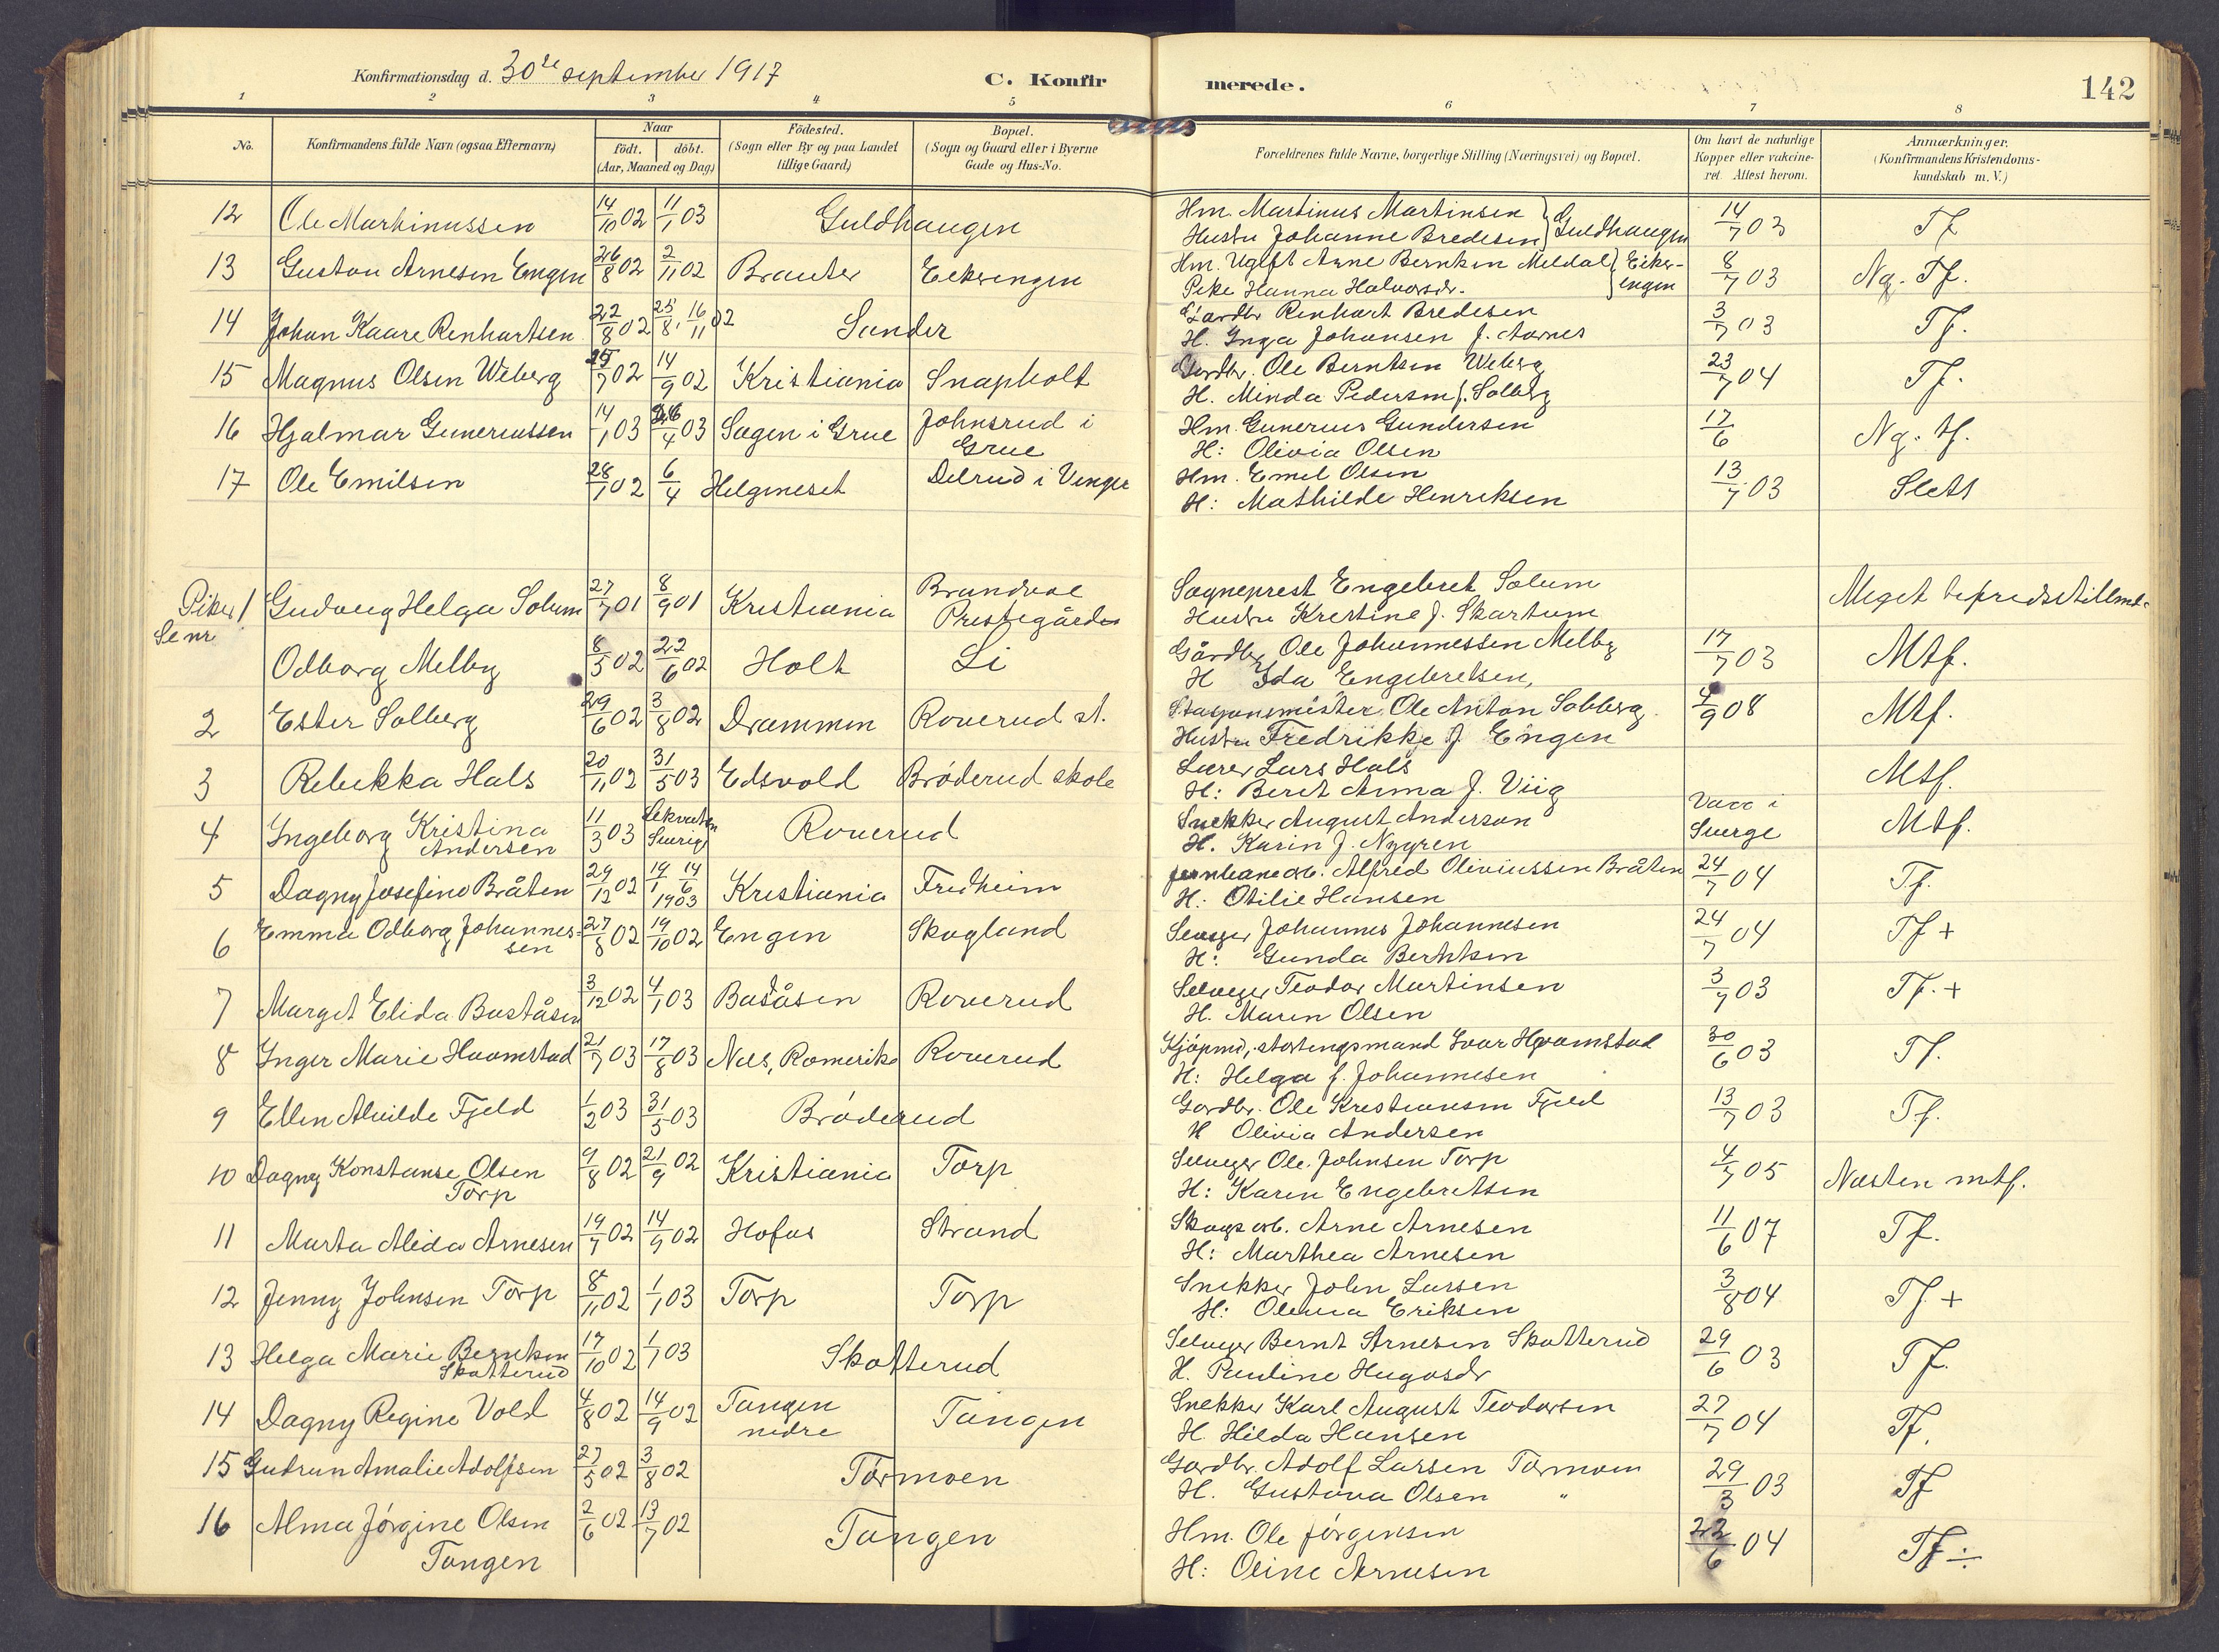 Konfirmationsdag d. 30te september 1917
C. Konfirmerede.
142
1 2 3 4 5 6 7 8
No. Konfirmandens fulde Navn (ogsaa Efternavn) Naar födt. döbt. (Aar, Maaned og Dag) Födested. (Sogn eller By og paa Landet tillige Gaard) Bopæl. (Sogn og Gaard eller i Byerne Gade og Hus-No. Forældrenes fulde Navne, borgerlige Stilling (Næringsvei) og Bopæl. Om havt de naturlige Kopper eller vakcineret. Attest herom. Anmærkninger. (Konfirmandens Kristendomskundskab m. V.)
12 Ole Martinussen 14/10 02 11/1 03 Guldhaugen Hm. Martinus Martinsen Hustru Johanne Bredesen } Guldhaugen 14/7 03 Tf
13 Gustav Arnesen Engen 26/8 02 2/11 02 Brauter Eekrengen Hm. Ugift Arne Berntsen Meldal Pike Hanna Halvorsdr. } Eikerengen 8/7 03 Ng. Tf.
14 Johan Kaare Renhartsen 22/8 02 25/8, 16/11 02 Sander Gardbr Renhart Bredesen
H. Inga Johansen f. Aarnes 3/7 03 Tf.
15 Magnus Olsen Weberg 25/7 02 14/9 02 Kristiania Snapholt Gardbr. Ole Berntsen Weberg
H. Minda Pedersen f. Solberg 23/7 04 Tf.
16 Hjalmar Gunerussen 14/1 03 /4 03 Sagen i Grue Johnsrud i Grue Hm. Gunerius Gundersen
H: Olivia Olsen 17/6 Ng. tf.
17 Ole Emilsen 28/1 02 6/4 Helgeneset Delrud i Vinger Hm. Emil Olsen
H: Mathilde Henriksen 13/7 03 Slett
Piker 1 Gudveig Helga Solum 27/7 01 8/9 01 Kristiania Brandval Prestegården Sogneprest Engebret Solum
Hustru Kristine f. Skartum Meget tilfredsstillende
Se nr
Odborg Melby 8/5 02 22/6 02 Holt Li Gårdbr Ole Johannessen Melby
H Ida Engebretsen, 17/7 03 Mtf.
2 Ester Solberg 29/6 02 3/8 02 Drammen Roverud st. Stasjonsmester Ole Anton Solberg
Hustru Fredrikke f Engen 4/9 08 Mtf.
3 Rebekka Hals 20/11 02 31/5 03 Edsvold Bröderud skole Lærer Lars Hals
H: Berit Anna f. Viig Mtf.
4 Ingeborg Kristina Andersen 11/3 03 Roverud Snekker August Anderson
H. Karin f. Nygren Vacc i Sverge Mtf.
5 Dagny Josefine Bråten 29/12 02 19/1 14/6 1903 Kristiania Fredheim Jernbanearb. Alfred Oliviussen Bråten
H. Otilie Hansen 24/7 04 T.f.
6 Emma Odborg Johannessen 27/8 02 19/10 02 Engen Skogland Selveger Johannes Johannesen
H: Gunda Berntsen 24/7 04 Tf +
7 Margit Elida Baståsen 3/12 02 4/1 03 Baståsen Roverud Selveger Teodor Martinsen
H. Maren Olsen 3/7 03 Tf. +
8 Inger Marie Hvamstad 21/7 03 17/8 03 Næs, Romerike Roverud Kjöpmd, stortingsmand Ivar Hvamstad
H: Helga f. Johannesen 30/6 03 Tf.
9 Ellen Alvilde Fjeld 1/2 03 31/5 03 Bröderud Gardbr. Ole Kristiansen Fjeld
H Olivia Andersen 13/7 03 T.f.
10 Dagny Konstanse Olsen Torp 9/8 02 21/9 02 Kristiania Torp Selveger Ole Johnsen Torp
H: Karen Engebretsen 4/7 05 Næsten mtf.
11 Marta Alida Arnesen 19/7 02 14/9 02 Hofos Strand Skogsarb. Arne Arnesen
H: Marthea Arnesen 11/6 07 Tf.
12 Jenny Johnsen Torp 8/11 02 1/1 03 Torp Torp Snekker John Larsen
H: Olevia Eriksen 3/8 04 Tf +
13 Helga Marie Berntsen Skotterud 17/10 02 1/1 03 Skotterud Selveger Bernt Arnesen Skotterud
H. Pauline Hugosdr 29/6 03 Tf.
14 Dagny Regine Vold 4/8 02 14/9 02 Tangen nedre Tangen Snekker Karl August Teodorsen
H. Hilda Hansen 27/7 04 Tf.
15 Gudrun Amalie Adolfsen 27/5 02 3/8 02 Törmoen Gardbr. Adolf Larsen Tormoen
H. Gustava Olsen " 29/3 03 Tf
16 Alma Jörgine Olsen Tangen 2/6 02 13/7 02 Tangen Hm. Ole Jörgensen
H: Oline Arnesen 22/6 04 Tf ÷